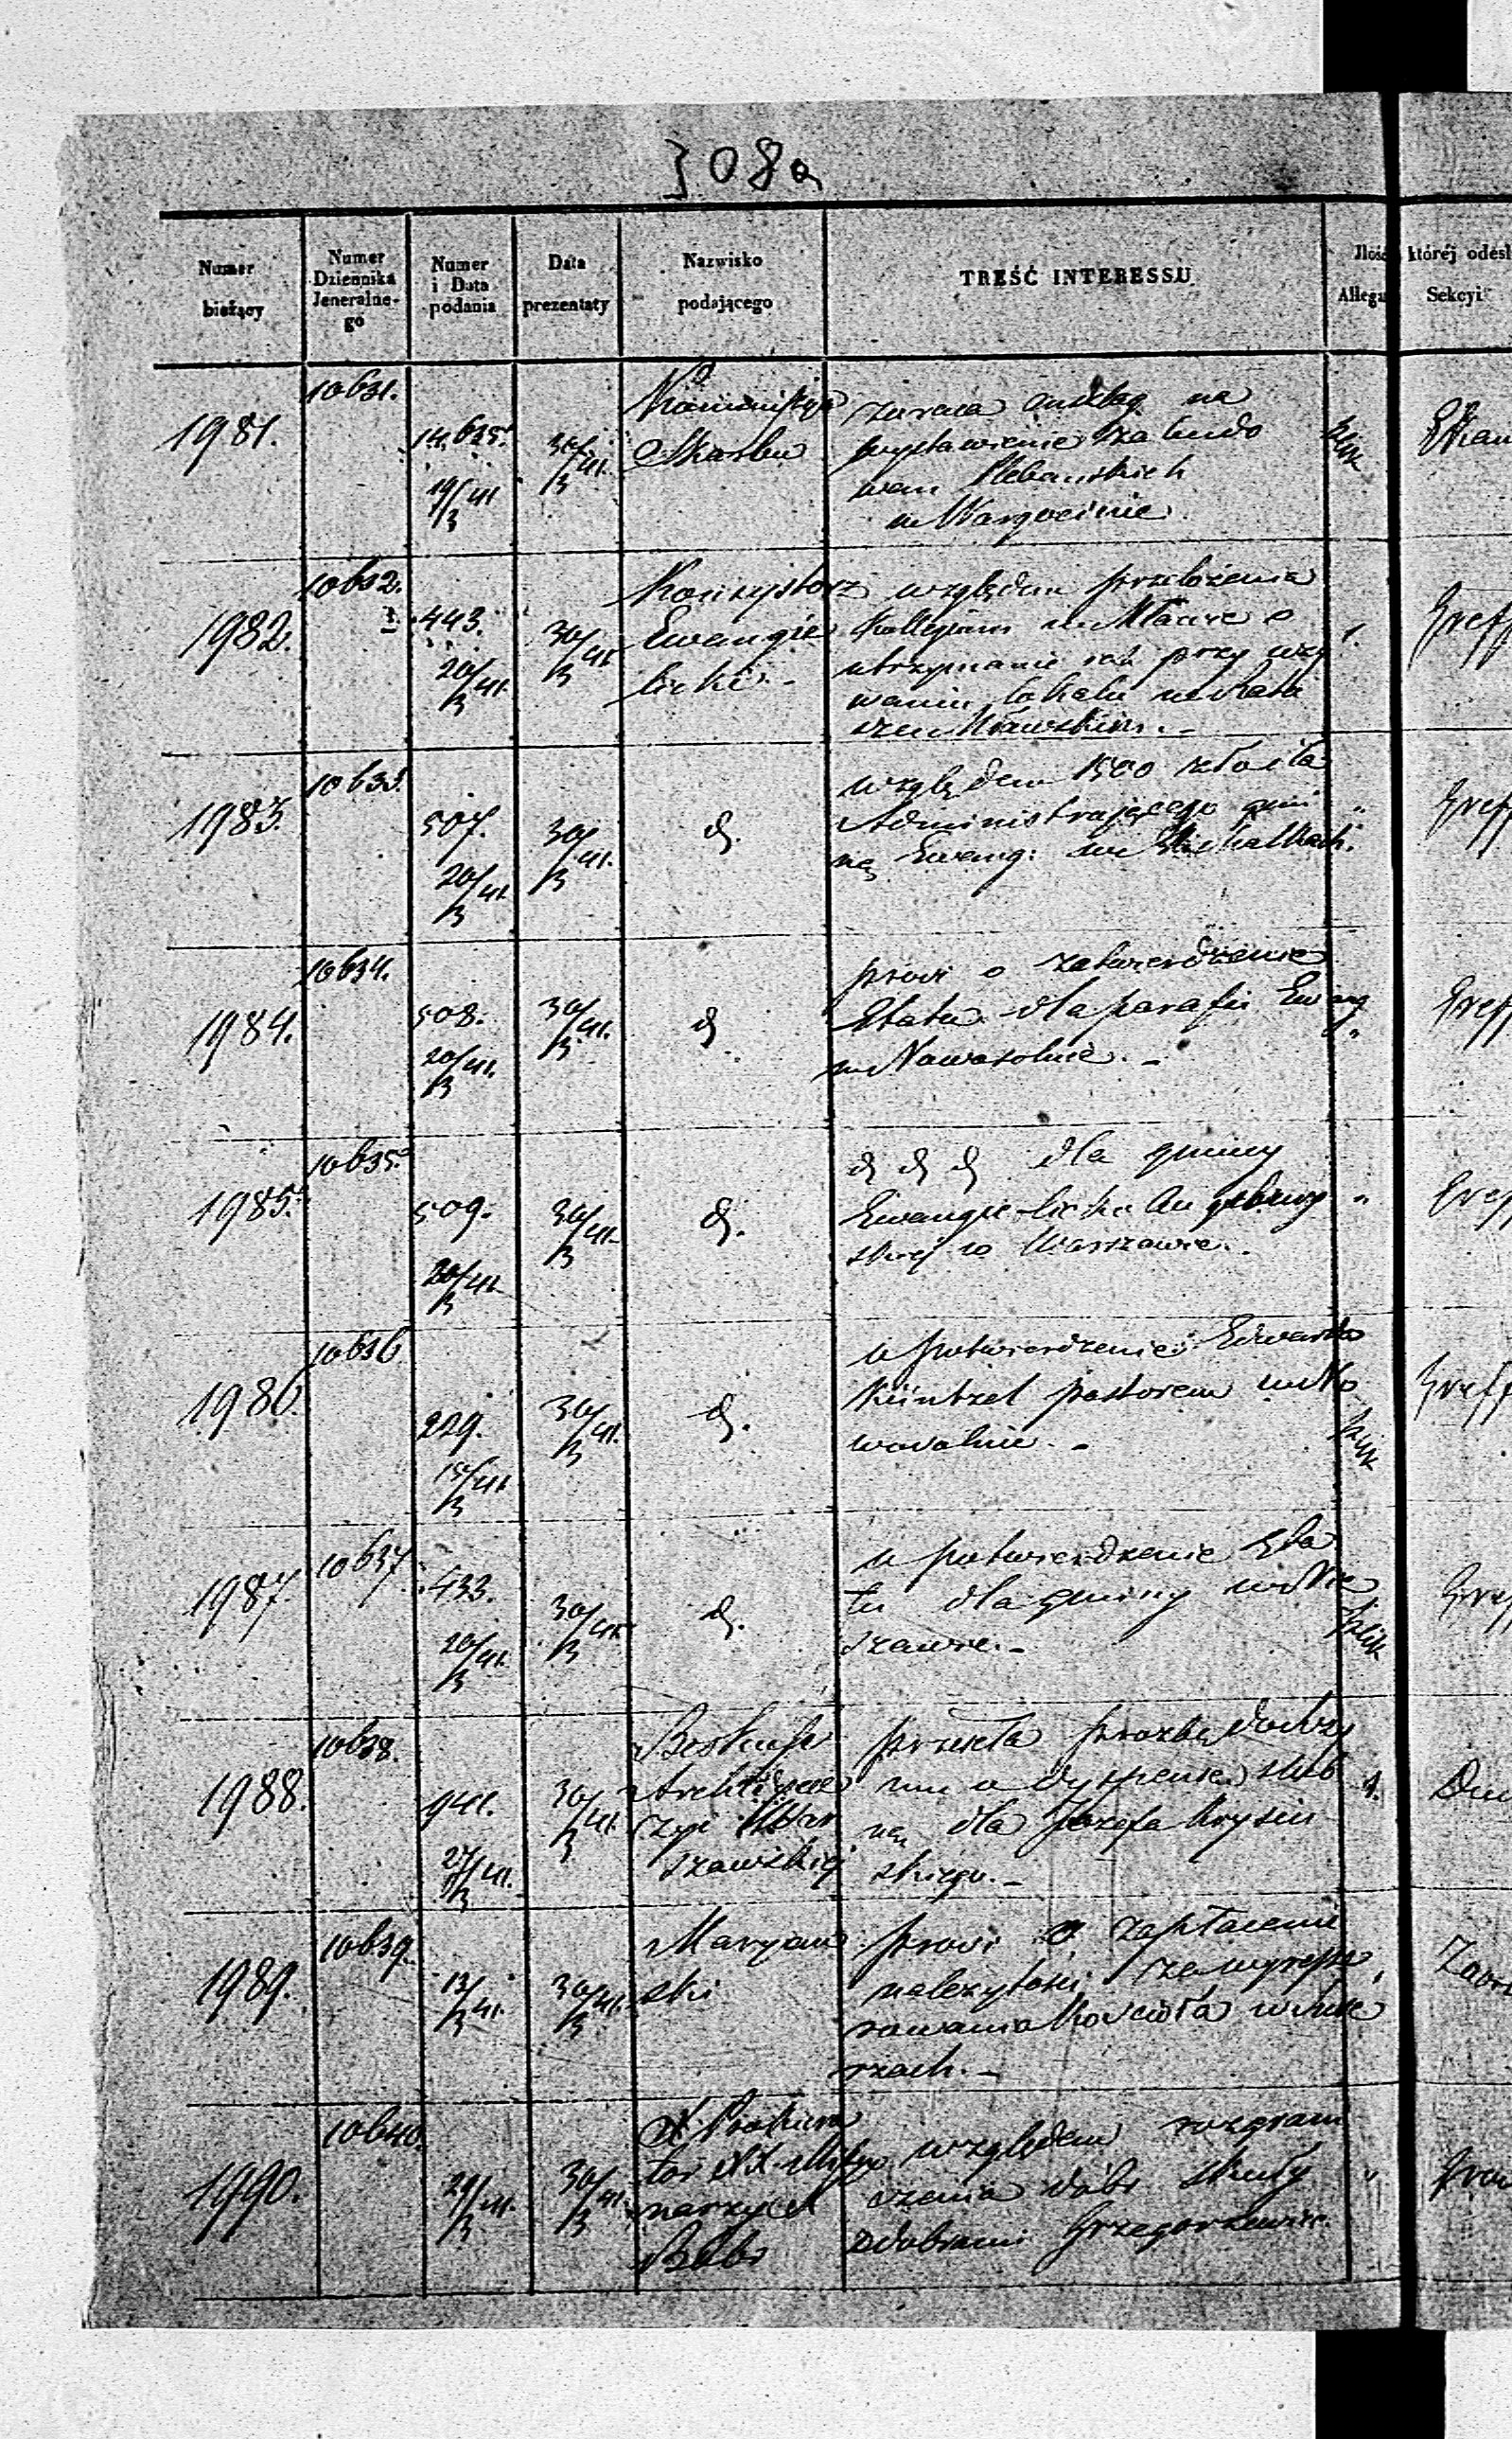 308a
Numer bieżący
Numer Dziennika Jeneralnego
Numer i Data podania
Data prezentaty
Nazwisko podającego
TREŚĆ INTERESSU
Ilość Allega
której odesł
Sekcyi
1981.
10631.
14,625.
19/3 41
30/3 41.
Kommissya
Skarbu
zwraca anszlag na
wystawienie budo
wem Plebanskich
1982.
10632.
443.
20/3 41.
30/3 41
Konsystorz
Ewangie
licki.-
względem przełożenia
Kollegium w Mławie o
utrzymanie przy uży
waniu lokalu w Ratu
szu Mławskim.-
1.
Greff
1983.
10633.
507.
20/3 41.
30/3 41.
d.
względem 1500 zł
Administrującego gmi
ną Ewang: w Michałkach.
"
Greff
1984.
10634.
508.
20/3 41.
30/3 41.
d
prosi o zatwierdzenie
Etatu dla parafii Ewang
w Nowosolnie.-
"
Greff
1985.
10635.
509.
20/3 41.
30/3 41.
d.
d d d dla gminy
Ewangielicko Augsburg
skiej w Warszawie.
"
Greff
1986.
10636
229.
15/3 41.
30/3 41.
d.
o potwierdzenie Edwarda
Küntzel pastorem w No
wosolnie.-
Greff
1987.
10637.
433.
20/3 41.
30/3 41.
d.
o potwierdzenie Eta
tu dla gminy w Nie
szawie.-
Greff
1988.
10638.
941.
27/3 41.
30/3 41.
Biskup
Archidyece
zyi War
szawskiej
przesyła prozbę
o dyspensę ślub
ną dla Józefa Krysiń
skiego.-
1.
1989.
10639.
13/3 41.
30/3 41.
Maryań
ski
prosi o zapłacenie
należytości za wyrepe
rowania Kościoła w
rzach.-
1990.
10640.
29/3 41.
30/3 41.
X Prokura
tor XX Missyo
narzy
względem rozgrani
czenia dóbr Skuły
z dobrami Grzegorzewice
"